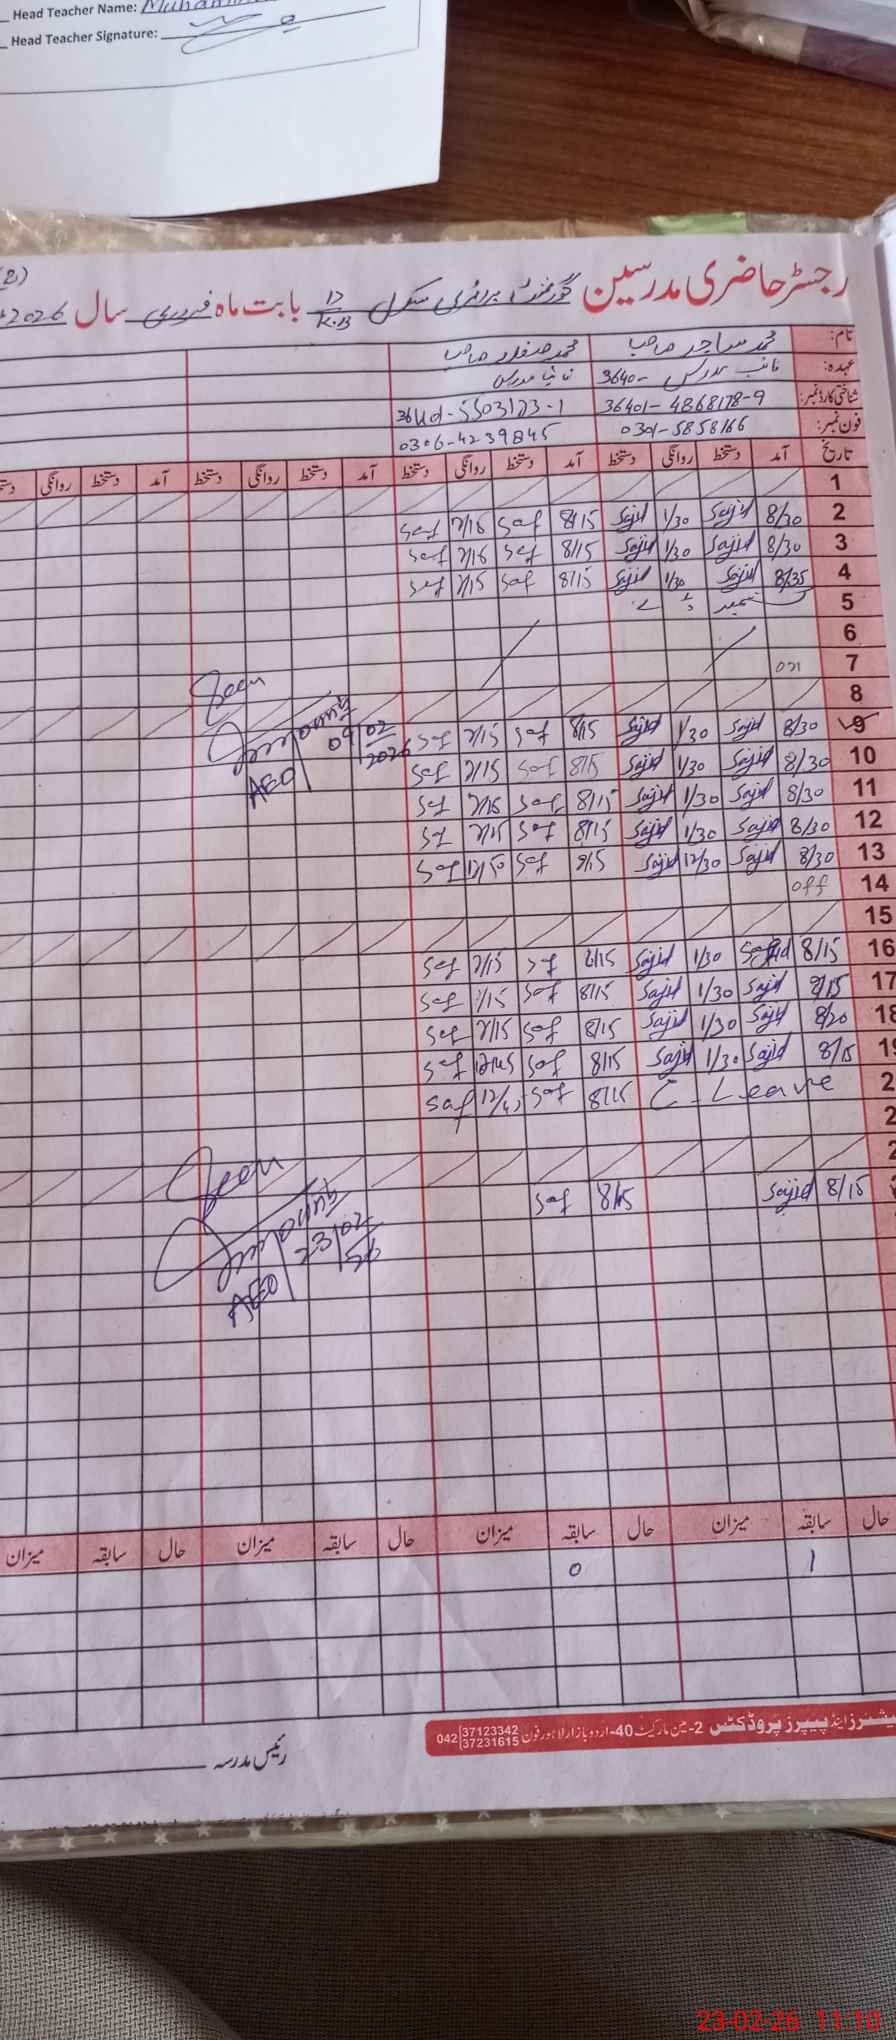 Head Teacher Name: Muhamm
Head Teacher Signature:
رجسٹر حاضری مدرسین گورنمنٹ پرائمری سکول 17/K.B بابت ماہ فروری سال 2026
نام: محمد ساجد صاحب محمد صفدر صاحب
عہدہ: نائب مدرس -3640 نائب مدرس
شناختی کارڈ نمبر: 36401-4868178-9
فون نمبر: 0301-5858166 0306-4239845
تاریخ آمد دستخط روانگی دستخط آمد دستخط روانگی دستخط آمد دستخط روانگی دستخط آمد دستخط روانگی
1
2 8/30 Sajid 1/30 Sajid 8/15 saf saf
3 8/30 Sajid 1/30 Sajid 8/15 saf saf
4 8/35 Sajid 1/30 Sajid 8/15 saf saf
5
6
7
8
Seen
9 8/30 Sajid 1/30 Sajid 8/15 saf saf
09/02/2026
AEO
10 8/30 Sajid 1/30 Sajid 8/15 saf saf
11 8/30 Sajid 1/30 Sajid 8/15 saf saf
12 8/30 Sajid 1/30 Sajid 8/15 saf saf
13 8/30 Sajid 12/30 Sajid 8/15 saf saf
14 off
15
16 8/15 Sajid 1/30 Sajid 8/15 saf saf
17 8/15 Sajid 1/30 Sajid 8/15 saf saf
18 8/20 Sajid 1/30 Sajid 8/15 saf saf
19 8/15 Sajid 1/30 Sajid 8/15 saf saf
2 C-Leave 8/15 saf saf
2
2
Seen
Sajid 8/15 saf 8/15
23/02/26
AEO
حال سابقہ میزان حال سابقہ میزان حال سابقہ میزان حال سابقہ میزان
1 0
پیپرز پروڈکٹس 2-مین مارکیٹ 40-اردو بازار لاہور فون 042 37123342 37231615
رئیس مدرسہ
23-02-26 11:10